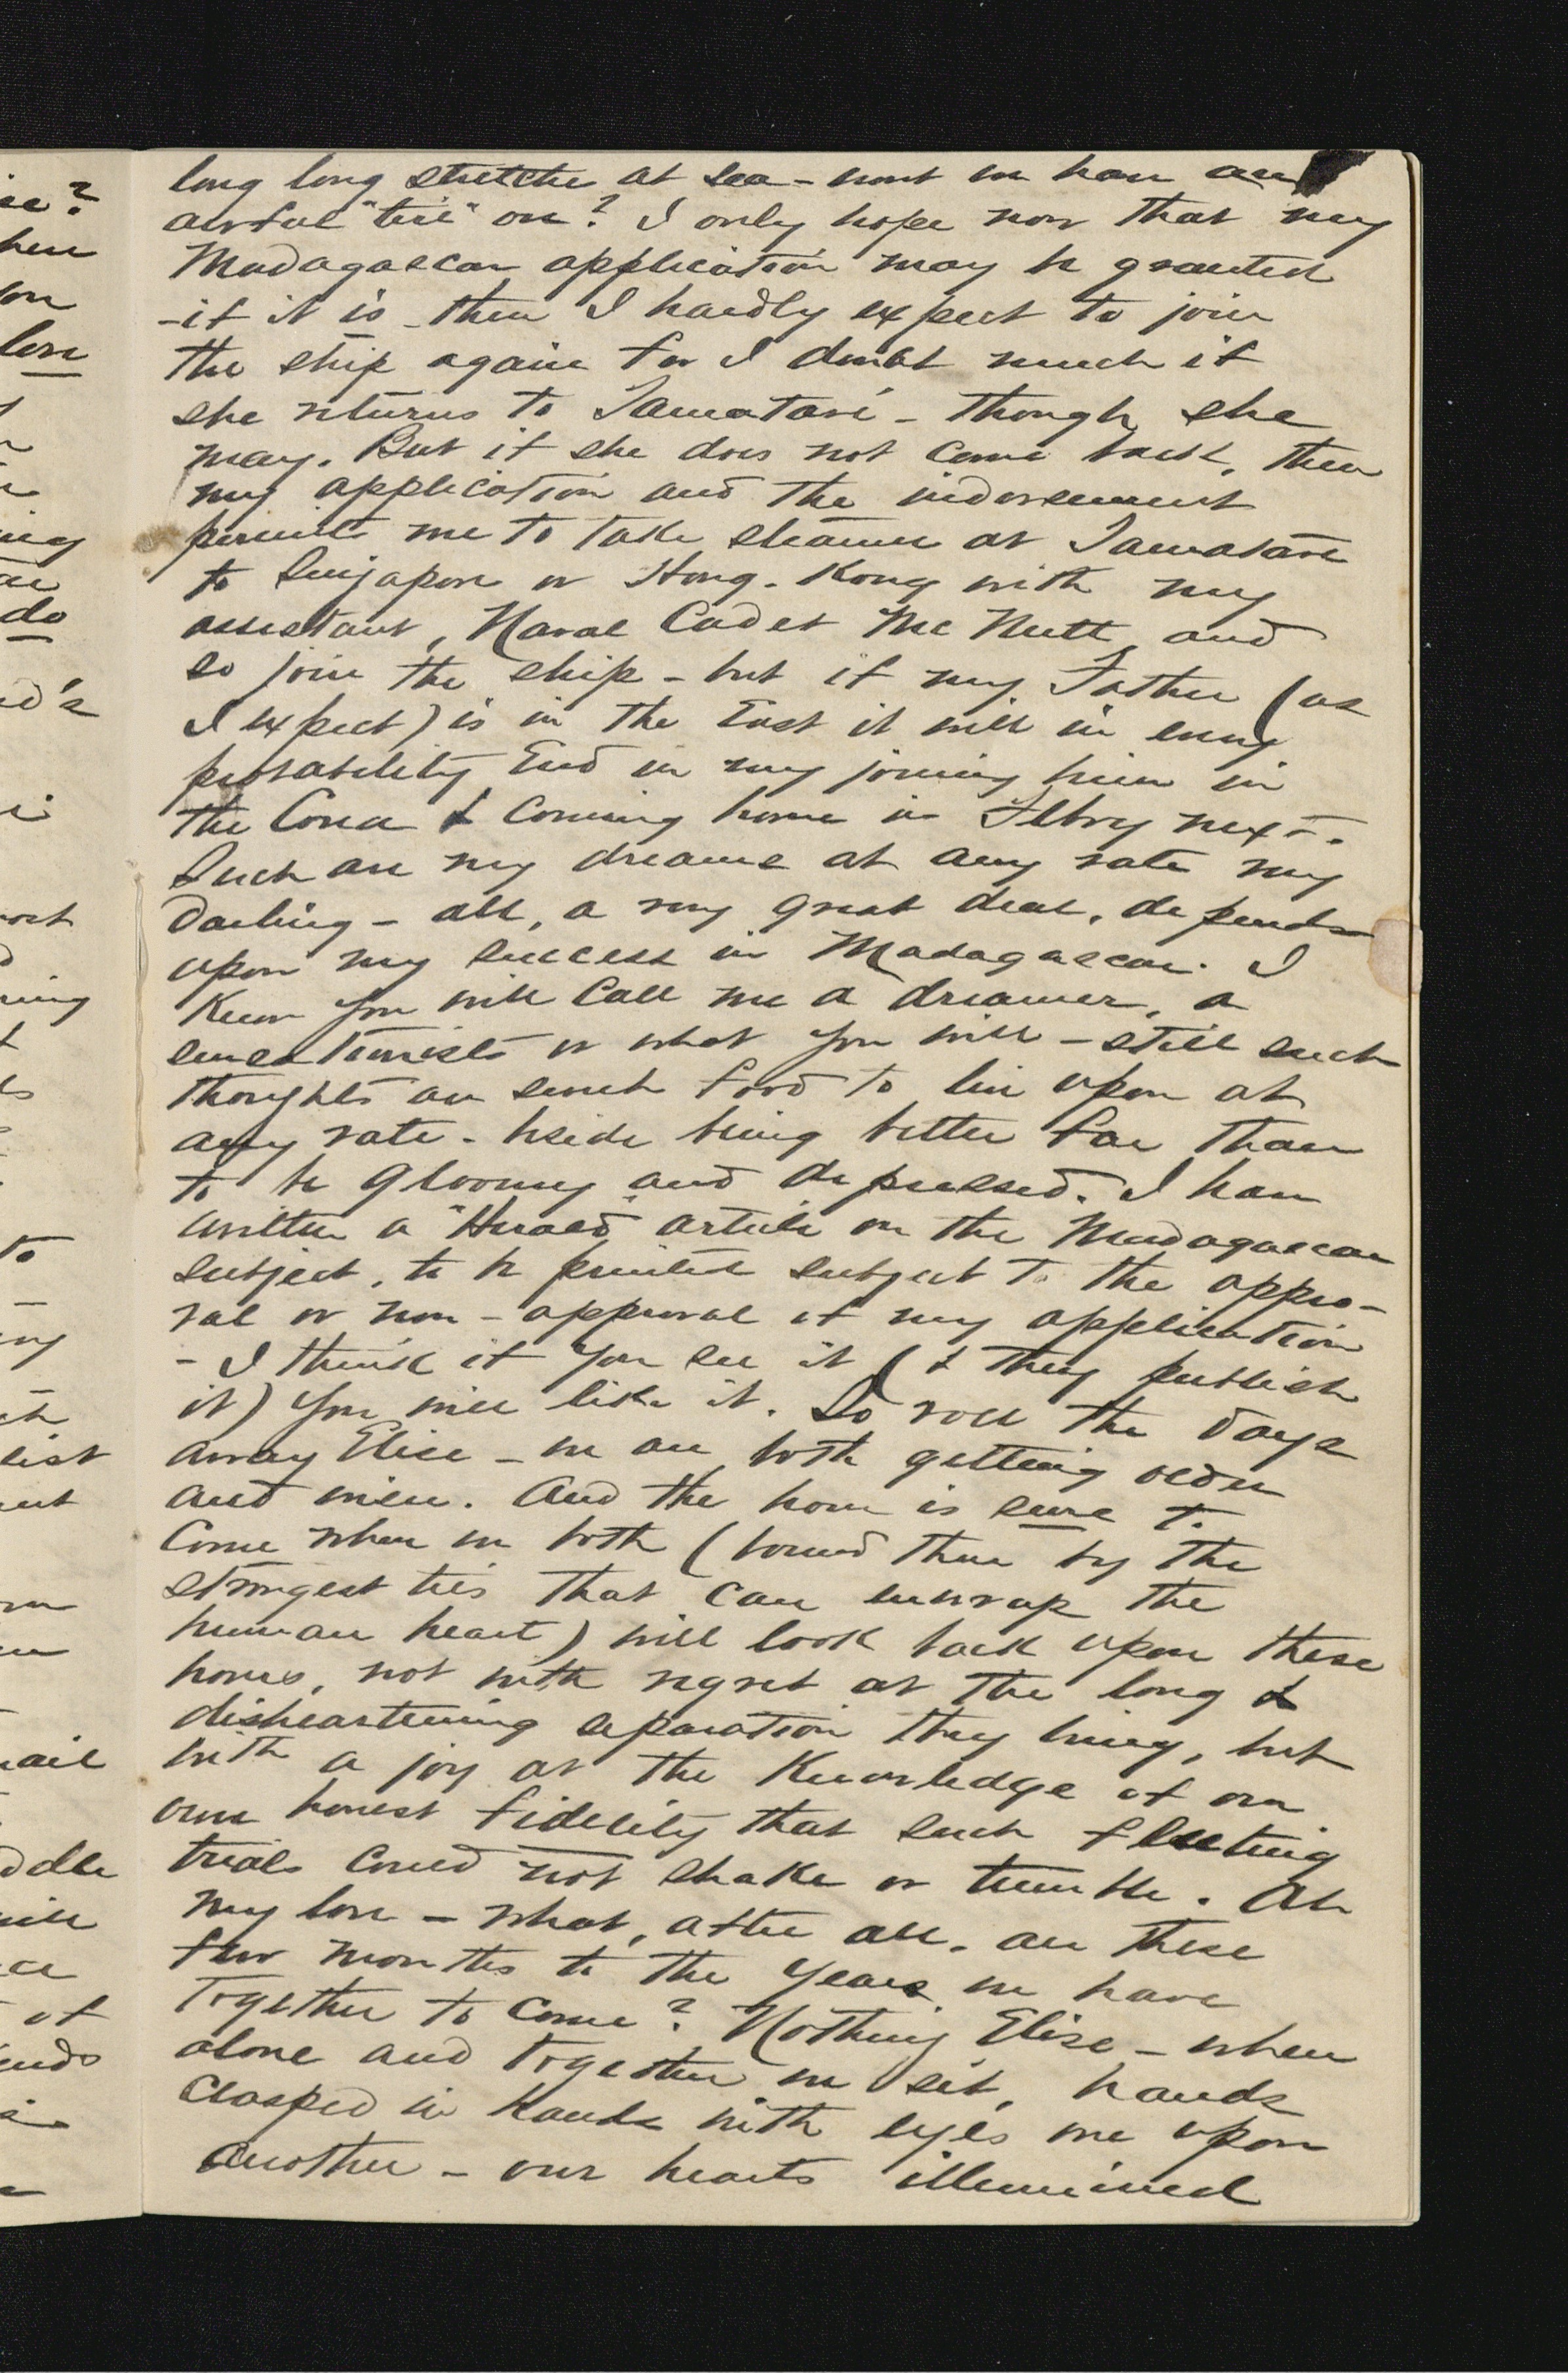 long long stretche at sea - wont we have an
awful "tëte" on? I only hope now that my
Madagascar application may be granted
- if it is - then I hardly expect to join
the ship again for I doubt much if
she returns to Tamatavé - though she
may. But if she does not come back, then
my application and the indorsement
permits me to take steamer at Tamatave
to Singapore or Hong-Kong with my
assistant, Naval Cadet McNutt, and
so join the ship - but if my Father (as
I expect) is in the East it will in every
probability end in my joining him in
the Corea & coming home in Febry next.
Such are my dreams at any rate my
darling - all, a very great deal, depends
upon my success in Madagascar. I
know you will call me a dreamer, a
or what you will - still such
thoughts are such food to live upon at
any rate - beside being better far than
to be gloomy and depressed. I have
written a "Herald" article on the Madagascar
subject, to be printed subject to the appro-
val or non-approval of my application
- I think if you see it (& they publish
it) you will like it. So roll the days
away Elise - we are both getting older
and wiser. And the hour is sure to
come when we both (bound then by the
strongest ties that can enwrap the
human heart) will look back upon these
hours, not with regret at the long &
disheartening separation they bring, but
with a joy at the knowledge of our
own honest fidelity that such fleeting
trials could not shake or tremble. Ah
my love - what, after all, are these
few months to the years we have
together to come? Nothing Elise - when
alone and together we sit, hands
clasped in hands with eyes one upon
another - our hearts illumined